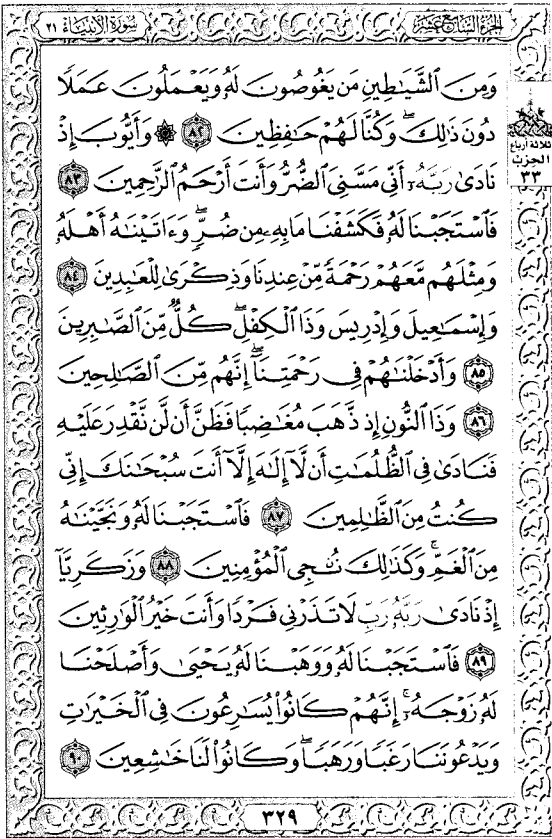 الجزء السابع عشر
سورة الأنبياء ٢١
وَمِنَ ٱلشَّيَٰطِينِ مَن يَغُوصُونَ لَهُۥ وَيَعْمَلُونَ عَمَلًا
دُونَ ذَٰلِكَۖ وَكُنَّا لَهُمْ حَٰفِظِينَ ٨٢ ۞ وَأَيُّوبَ إِذْ
نَادَىٰ رَبَّهُۥٓ أَنِّي مَسَّنِيَ ٱلضُّرُّ وَأَنتَ أَرْحَمُ ٱلرَّٰحِمِينَ ٨٣
فَٱسْتَجَبْنَا لَهُۥ فَكَشَفْنَا مَا بِهِۦ مِن ضُرٍّۖ وَءَاتَيْنَٰهُ أَهْلَهُۥ
وَمِثْلَهُم مَّعَهُمْ رَحْمَةً مِّنْ عِندِنَا وَذِكْرَىٰ لِلْعَٰبِدِينَ ٨٤
وَإِسْمَٰعِيلَ وَإِدْرِيسَ وَذَا ٱلْكِفْلِۖ كُلٌّ مِّنَ ٱلصَّٰبِرِينَ
٨٥ وَأَدْخَلْنَٰهُمْ فِي رَحْمَتِنَآۖ إِنَّهُم مِّنَ ٱلصَّٰلِحِينَ
٨٦ وَذَا ٱلنُّونِ إِذ ذَّهَبَ مُغَٰضِبًا فَظَنَّ أَن لَّن نَّقْدِرَ عَلَيْهِ
فَنَادَىٰ فِي ٱلظُّلُمَٰتِ أَن لَّآ إِلَٰهَ إِلَّآ أَنتَ سُبْحَٰنَكَ إِنِّي
كُنتُ مِنَ ٱلظَّٰلِمِينَ ٨٧ فَٱسْتَجَبْنَا لَهُۥ وَنَجَّيْنَٰهُ
مِنَ ٱلْغَمِّۚ وَكَذَٰلِكَ نُـۨجِي ٱلْمُؤْمِنِينَ ٨٨ وَزَكَرِيَّآ
إِذْ نَادَىٰ رَبَّهُۥ رَبِّ لَا تَذَرْنِي فَرْدًا وَأَنتَ خَيْرُ ٱلْوَٰرِثِينَ
٨٩ فَٱسْتَجَبْنَا لَهُۥ وَوَهَبْنَا لَهُۥ يَحْيَىٰ وَأَصْلَحْنَا
لَهُۥ زَوْجَهُۥٓۚ إِنَّهُمْ كَانُوا۟ يُسَٰرِعُونَ فِي ٱلْخَيْرَٰتِ
وَيَدْعُونَنَا رَغَبًا وَرَهَبًاۖ وَكَانُوا۟ لَنَا خَٰشِعِينَ ٩٠
ثلاثة أرباع
الحزب
٣٣
٣٢٩